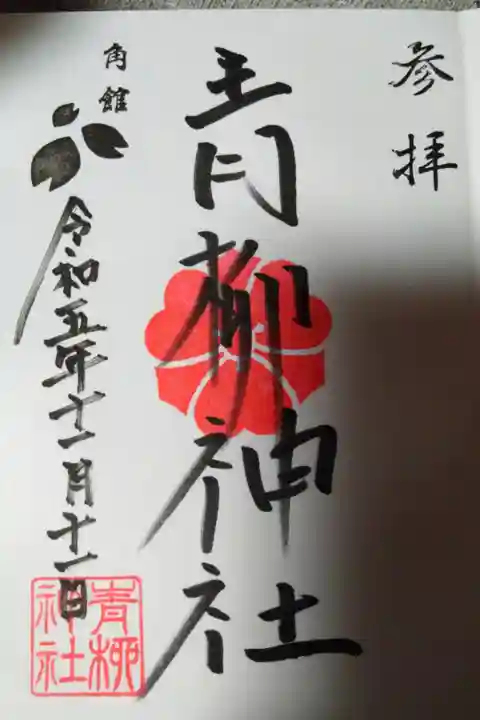 参拝
青柳神社
角館
令和五年十一月十一日
青柳
神社